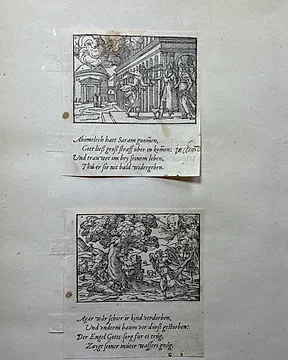 Abimelech hatt Saram gnom̄en,
Gott ließ groß straff über in kom̄en:
Und trauwet im bey seinem leben,
Thů er sie nit bald widergeben.
Agar wår schier ir kind verdorben,
Und underm baum vor durst gestorben:
Der Engel Gotts sorg für es trůg,
Zaigt seiner můter wassers gnůg.